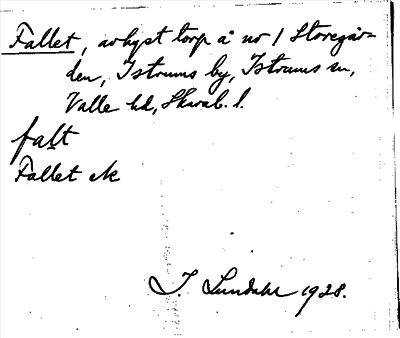 Fallet, avhyst torp å nr 1 Storegår-
den, Istrums by, Istrums sn,
Valle hd, Skarab. l.
falt
Fallet ek
I. Lundahl 1928.